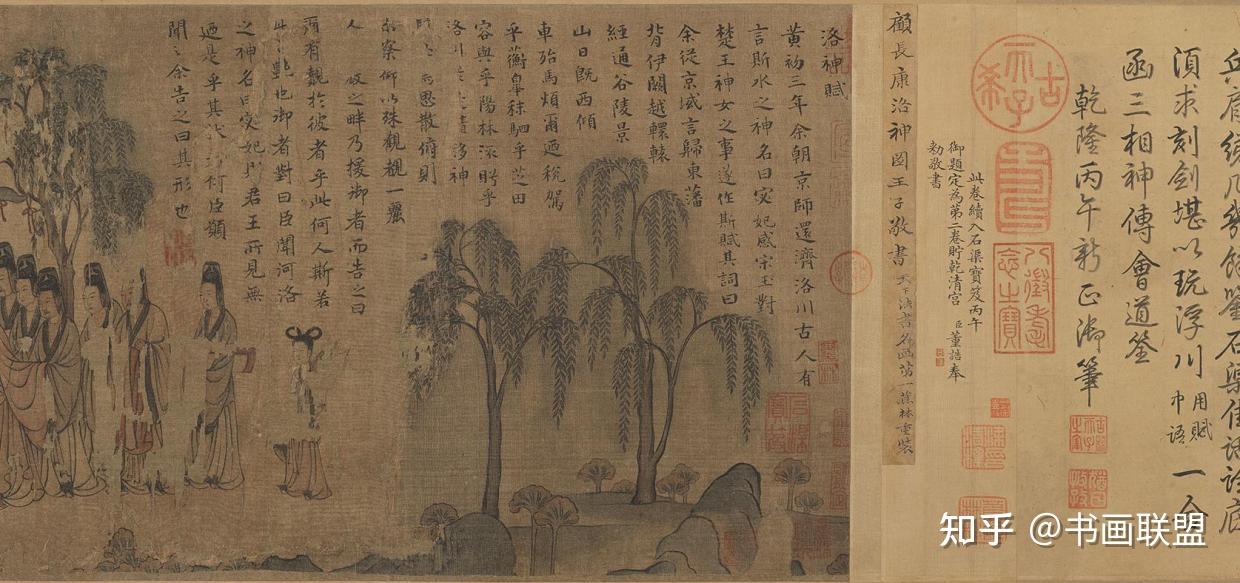 續几幾餘鑒石渠佳話
湏求刻劍堪以玩浮川 用賦中語 一合
函三相神傳會道筌
乾隆丙午新正御筆
古希天子
八徵耄念之寶
此卷續入石渠寶笈丙午
御題定為第二卷貯乾清宮 臣董誥奉
勅敬書
顧長康洛神圖王子敬書 天下法書名畫第一蕉林重裝
洛神賦
黃初三年余朝京師還濟洛川古人有
言斯水之神名曰宓妃感宋玉對
楚王神女之事遂作斯賦其詞曰
余從京域言歸東藩
背伊闕越轘轅
經通谷陵景
山日既西傾
車殆馬煩爾迺稅駕
乎蘅皋秣駟乎芝田
容與乎陽林流眄乎
洛川於 精移神
思散俯則
察仰以殊觀覩一麗
人 之畔乃援御者而告之曰
爾有覿於彼者乎此何人斯若
此 豔也御者對曰臣聞河洛
之神名曰宓妃則君王所見無
迺是乎其狀 何臣願
聞之余告之曰其形也
知乎 @书画联盟